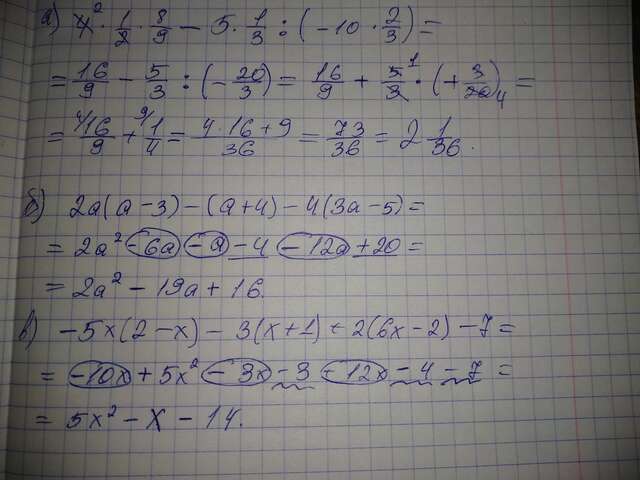 а) 4² · 1/2 · 8/9 − 5 · 1/3 : (−10 · 2/3) =
= 16/9 − 5/3 : (−20/3) = 16/9 + 5¹/3 · (+3/20₄) =
= ⁴/16/9 + ⁹/1/4 = 4·16+9/36 = 73/36 = 2 1/36.
б) 2a(a−3) − (a+4) − 4(3a−5) =
= 2a² −6a −a −4 −12a +20 =
= 2a² − 19a + 16.
в) −5x(2−x) − 3(x+1) + 2(6x−2) − 7 =
= −10x + 5x² − 3x − 3 + 12x − 4 − 7 =
= 5x² − x − 14.